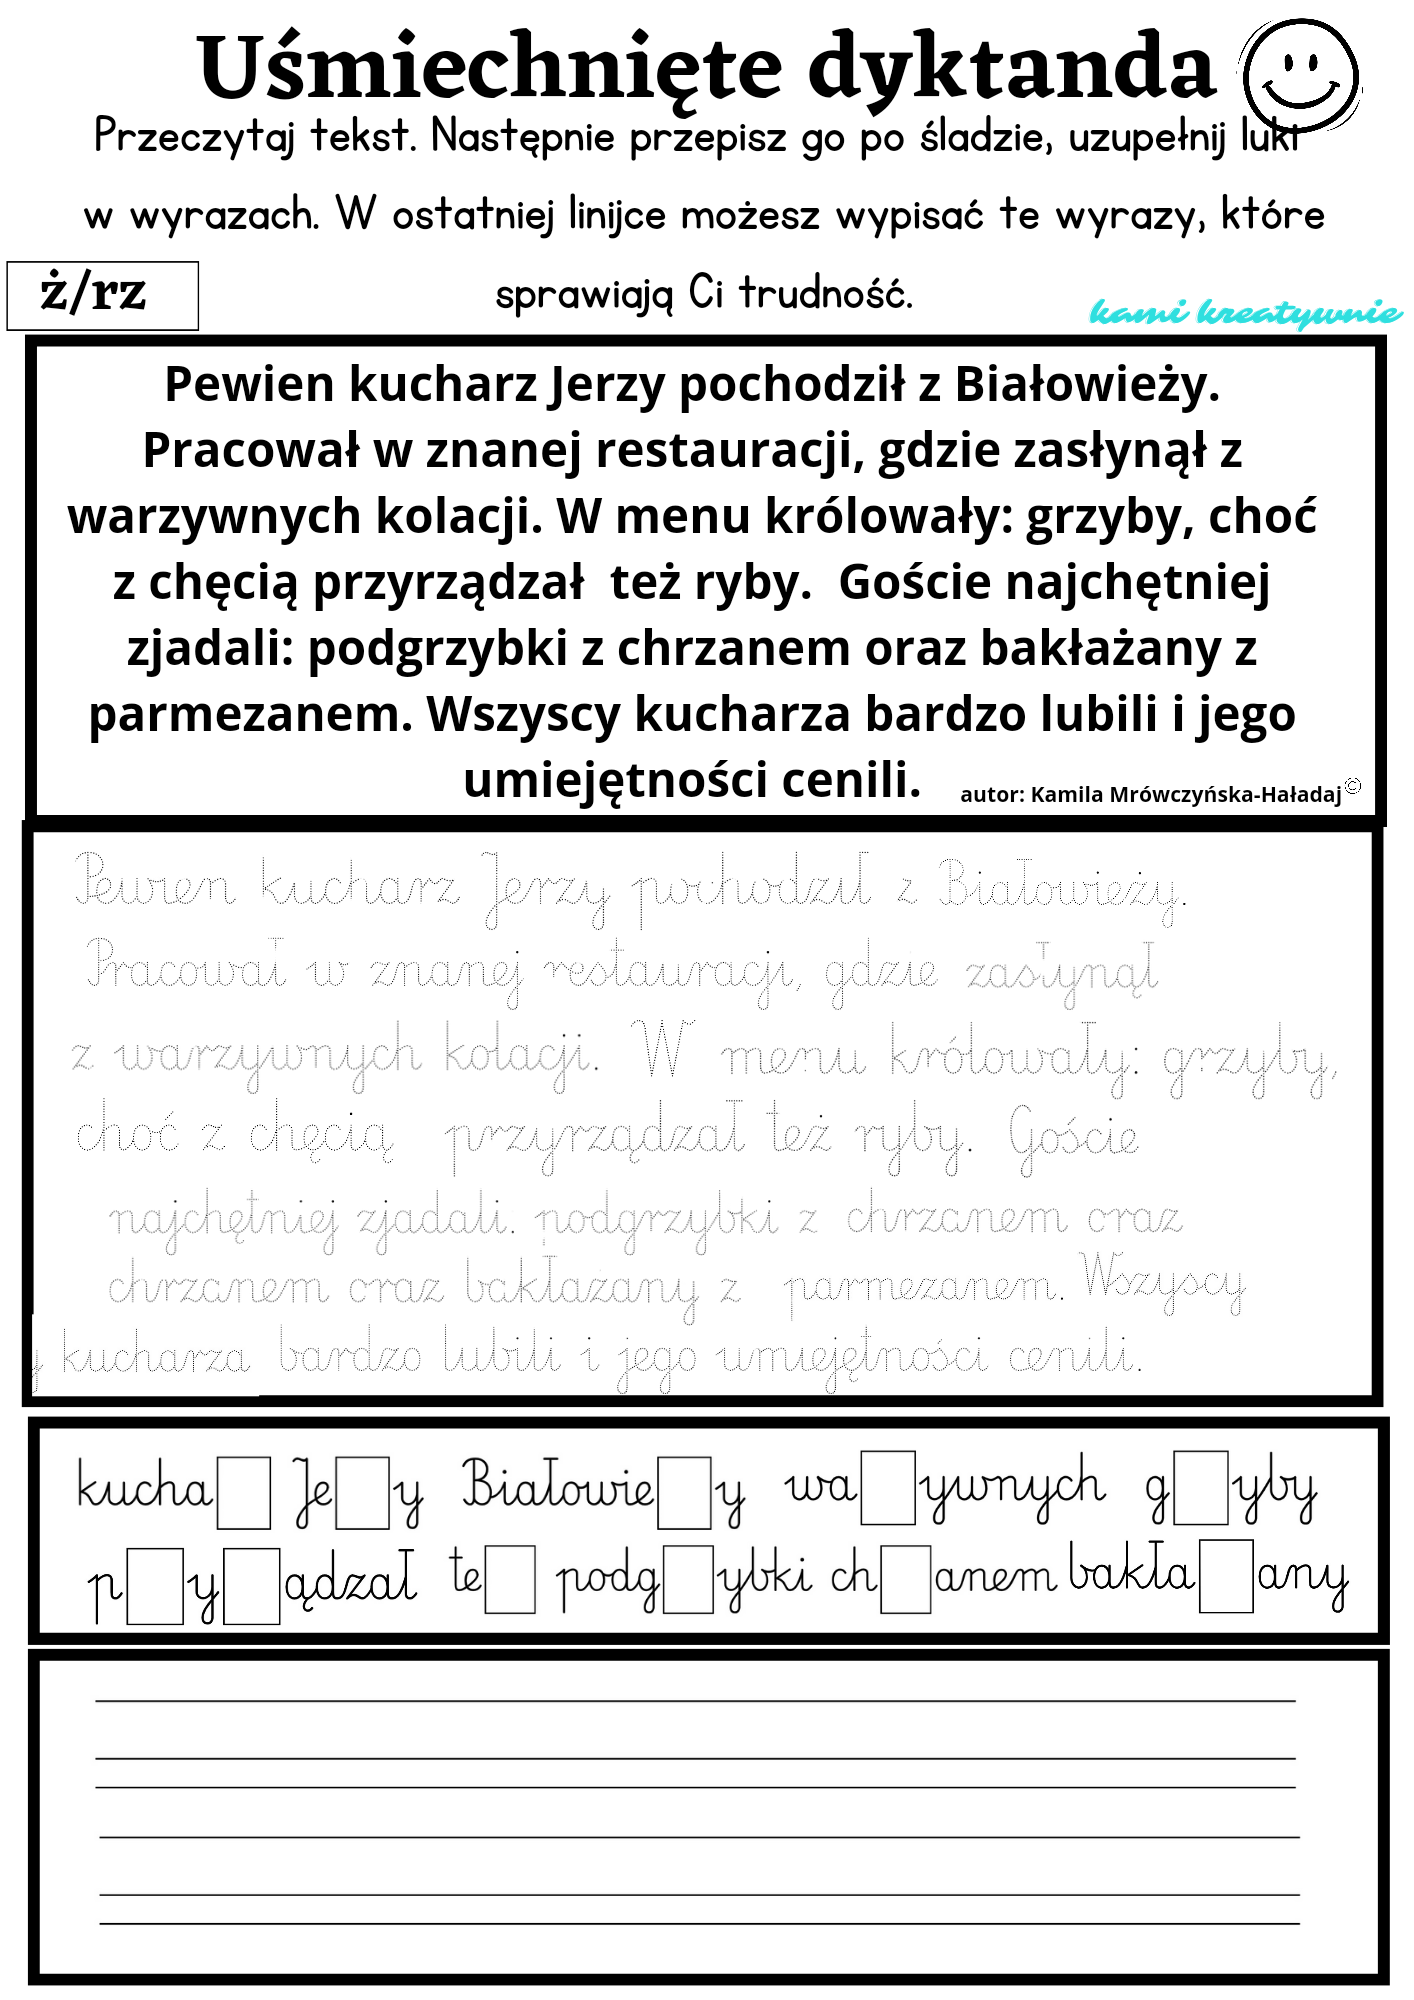 Uśmiechnięte dyktanda
Przeczytaj tekst. Następnie przepisz go po śladzie, uzupełnij luki
w wyrazach. W ostatniej linijce możesz wypisać te wyrazy, które
sprawiają Ci trudność.
ż/rz
kami kreatywnie
Pewien kucharz Jerzy pochodził z Białowieży.
Pracował w znanej restauracji, gdzie zasłynął z
warzywnych kolacji. W menu królowały: grzyby, choć
z chęcią przyrządzał  też ryby.  Goście najchętniej
zjadali: podgrzybki z chrzanem oraz bakłażany z
parmezanem. Wszyscy kucharza bardzo lubili i jego
umiejętności cenili.
autor: Kamila Mrówczyńska-Haładaj©
Pewien kucharz Jerzy pochodził z Białowieży.
Pracował w znanej restauracji, gdzie zasłynął
z warzywnych kolacji. W menu królowały: grzyby,
choć z chęcią przyrządzał też ryby. Goście
najchętniej zjadali. podgrzybki z chrzanem oraz
chrzanem oraz bakłażany z parmezanem. Wszyscy
y kucharza bardzo lubili i jego umiejętności cenili.
kucha□ Je□y Białowie□y wa□ywnych g□yby
p□y□ądzał te□ podg□ybki ch□anem bakła□any